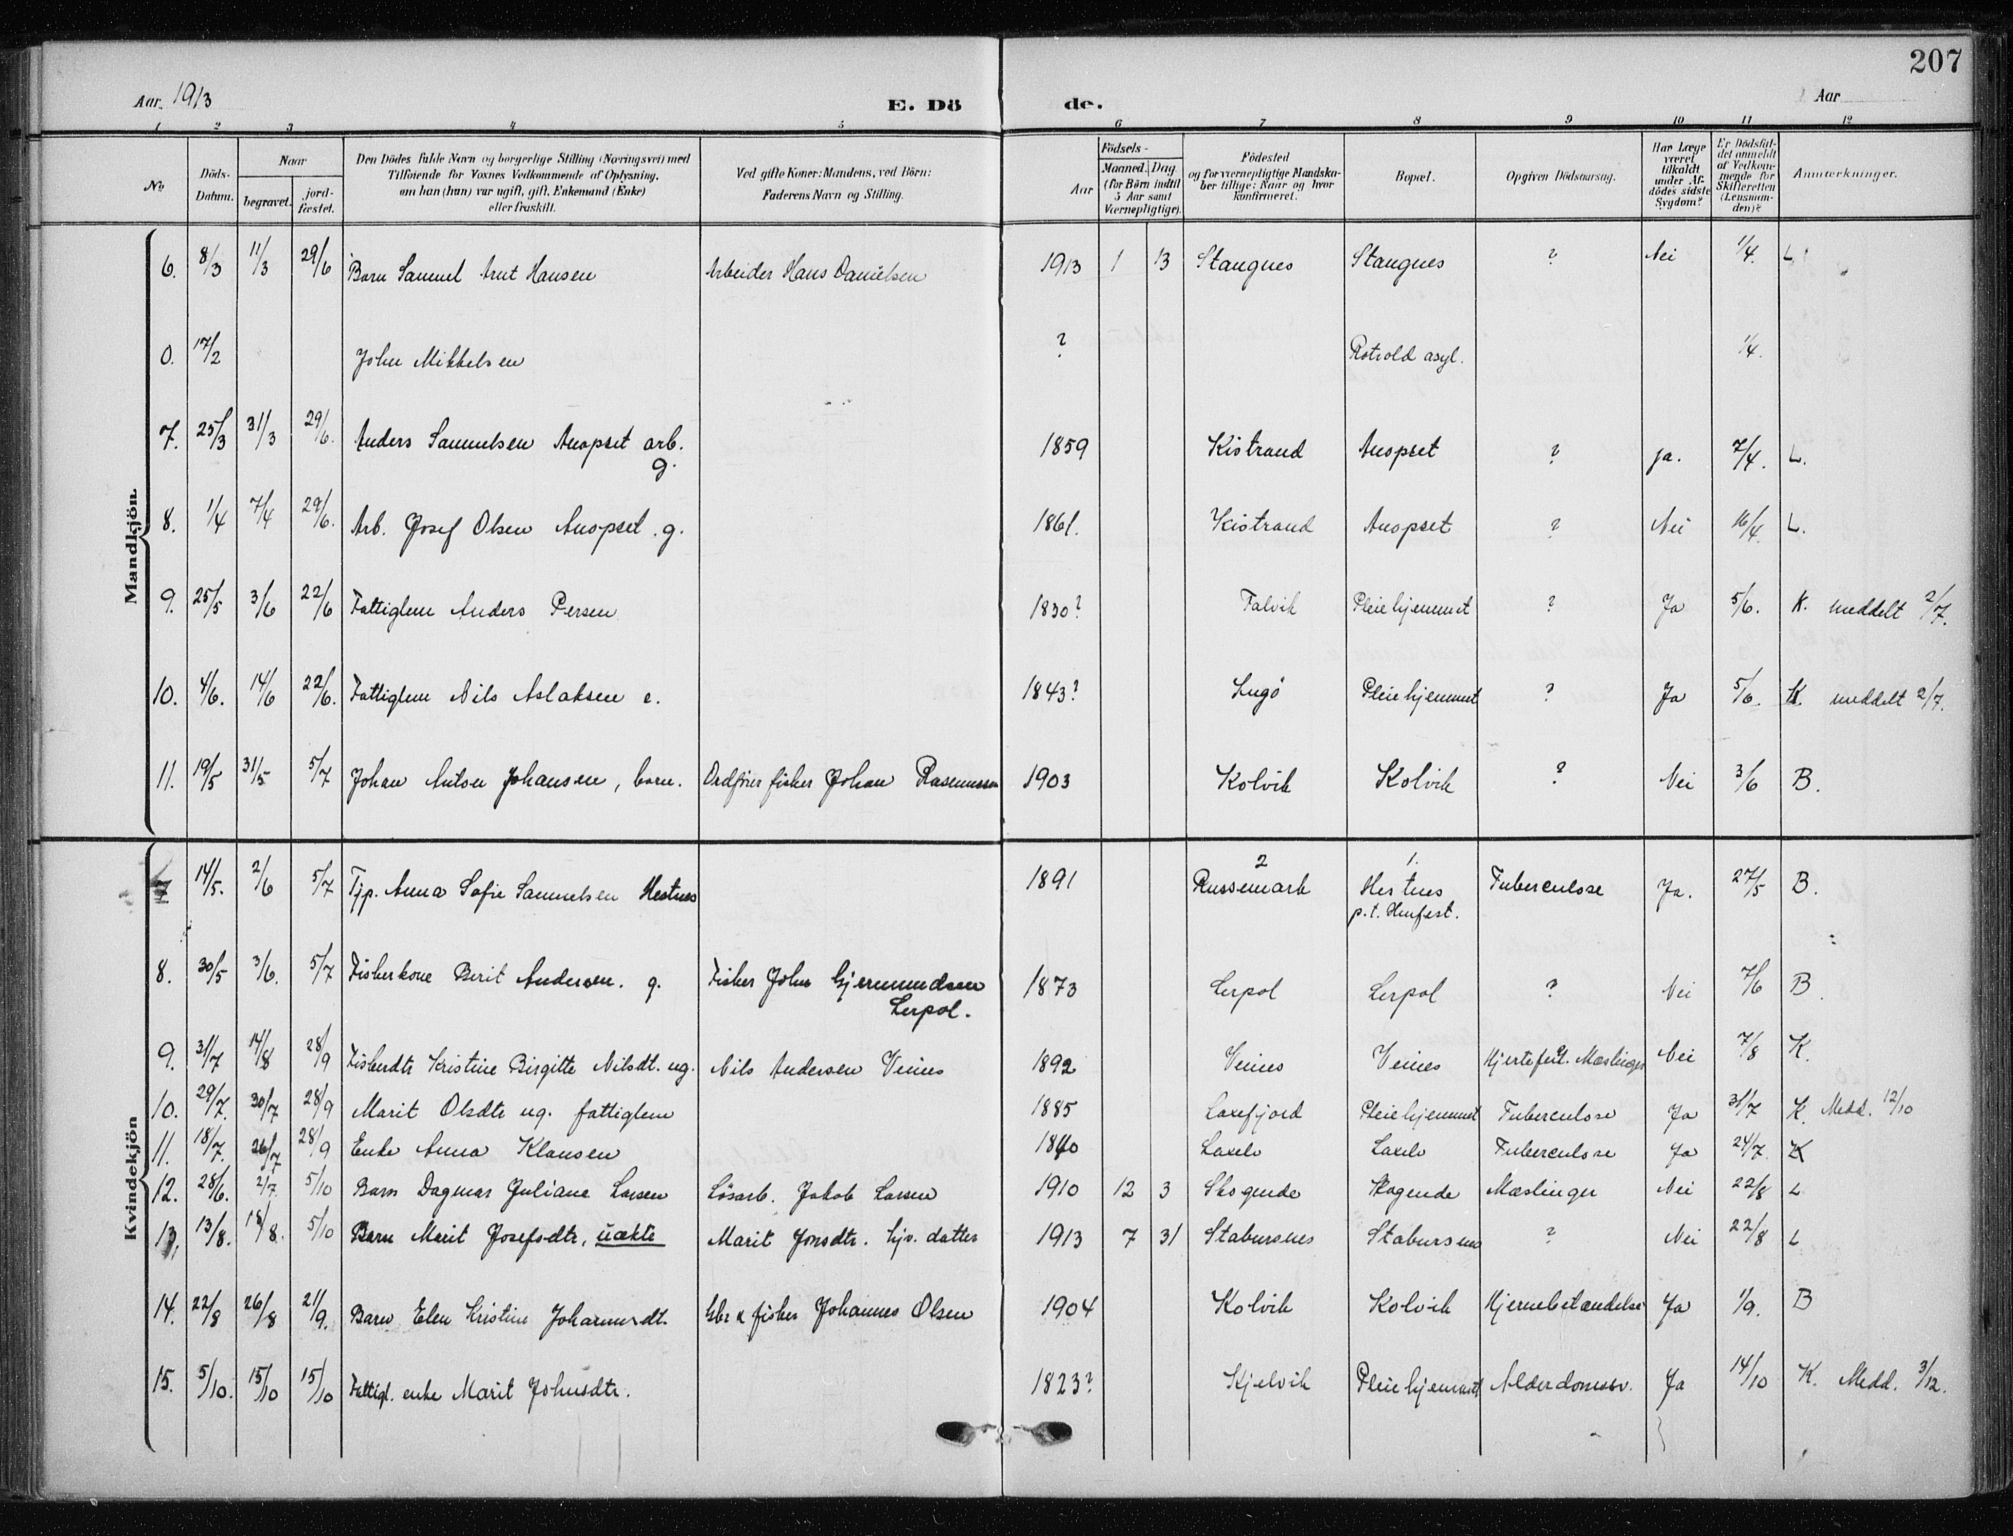 207
Aar 1913 E. Dö de. Aar
1 2 3 4 5 6 7 8 9 10 11 12
No
Döds-Datum.
Naar
begravet.
jord-fæstet.
Den Dödes fulde Navn og borgerlige Stilling (Næringsvei) med
Tilföiende for Voxnes Vedkommende af Oplysning,
om han (hun) var ugift, gift, Enkemand (Enke)
eller fraskilt.
Ved gifte Koner: Mandens, ved Börn:
Faderens Navn og Stilling.
Födsels-
Aar
Maaned. Dag
(for Börn indtil
5 Aar samt
Værnepligtige).
Födested
og for værnepligtige Mandska-
ber tillige: Naar og hvor
konfirmeret.
Bopæl.
Opgiven Dödsaarsag.
Har Læge
været
tilkaldt
under Af-
dödes sidste
Sygdom?
Er Dödsfal-
det anmeldt
af Vedkom-
mende for
Skifteretten
(Lensman-
den)?
Anmærkninger.
Mandkjön.
6. 8/3 11/3 29/6 Barn Samuel Hansen Arbeider Hans Danielsen 1913 1 13 Stangnes Stangnes ? Nei 1/4. L
0. 17/2 John Mikkelsen ? Rotvold asyl. 1/4.
7. 25/3 31/3 29/6. Anders Samuelsen Anopset arb. g. 1859 Kistrand Anopset ? ja. 7/4. L.
8. 1/4 7/4 29/6. Arb. Josef Olsen Anopset. g. 1861. Kistrand Anopset ? Nei 16/4. L.
9. 25/5 3/6 22/6 Fattiglem Anders Persen 1830? Talvik Pleiehjemmet ? Ja 5/6. K. meddelt 2/7.
10. 4/6. 14/6 22/6. Fattiglem Nils Aslaksen e. 1843? Ingö Pleiehjemmet ? Ja 5/6. K. meddelt 2/7.
11. 19/5 31/5 5/7 Johan Anton Johansen, barn. Ordfører fisker Johan Rasmussen 1903 Kolvik Kolvik ? Nei 3/6 B.
Kvindekjön
7 14/5. 2/6 5/7 Tjp. Anna Sofie Samuelsen Hestnes 1891 2 Russemark 1. Hestnes p.t. Hmfest. Tuberculose Ja. 27/5 B.
8. 30/5 3/6. 5/7 Fiskerkone Berit Andersen. g. Fisker John Gjermundsen Lerpol. 1873 Lerpol Lerpol ? Nei 7/6 B.
9. 31/7 14/8 28/9 Fiskerdtr Kristine Birgitte Nilsdt. ug. Nils Andersen Veines 1892 Veines Veines Hjertefeil. Mæslinger Nei 7/8 K.
10. 29/7. 30/7 28/9 Marit Olsdtr ug. fattiglem 1885 Laxefjord Pleiehjemmet Tuberculose Ja 31/7 K. Medd. 12/10
11. 18/7. 26/7 28/9 Enke Anna Klausen 1840 Laxelv Laxelv Tuberculose Ja 24/7. K
12. 28/6. 2/7. 5/10 Barn Dagmar Juliane Larsen Løsarb. Jakob Larsen 1910 12 3 Skogende Skogende Mæslinger Nei 22/8 L
13. 13/8. 18/8. 5/10 Barn Marit Josefsdtr, uækte Marit Jonsdtr. Gjv. datter 1913 7 31 Stabursnes Stabursnes ? Nei 22/8 L
14. 22/8 26/8 21/9. Barn Elen Kristine Johannesdt. Gbr & fisker Johannes Olsen 1904 Kolvik Kolvik Hjernebetændelse Ja 1/9. B
15. 5/10. 15/10 15/10 Fattigl. enke Marit Johnsdtr. 1823? Kjelvik Pleiehjemmet Alderdomssv. Ja 14/10 K. Medd. 3/12.